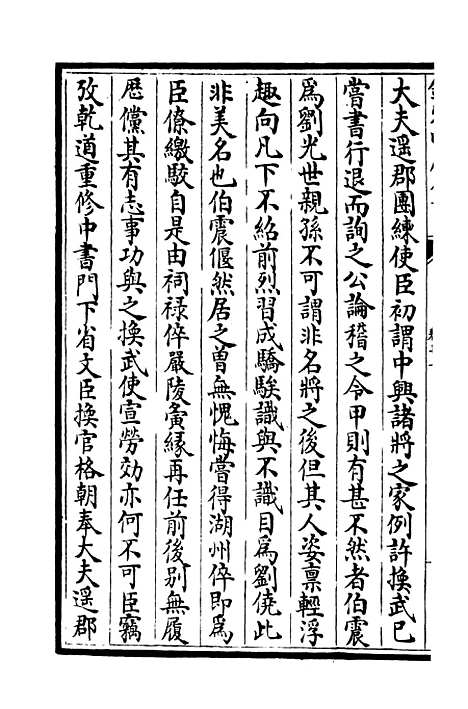 大夫遥郡團練使臣初謂中興諸將之家例許換武已
嘗書行退而詢之公論稽之令甲則有甚不然者伯震
爲劉光世親孫不可謂非名將之後但其人姿稟輕浮
趣向凡下不紹前烈習成驕騃識與不識目爲劉僥此
非美名也伯震偃然居之曽無愧悔嘗得湖州倅即爲
臣僚繳駮自是由祠禄倅嚴陵夤縁再任前後别無履
歴儻其有志事功與之換武使宣勞効亦何不可臣竊
攷乾道重修中書門下省文臣換官格朝奉大夫遥郡